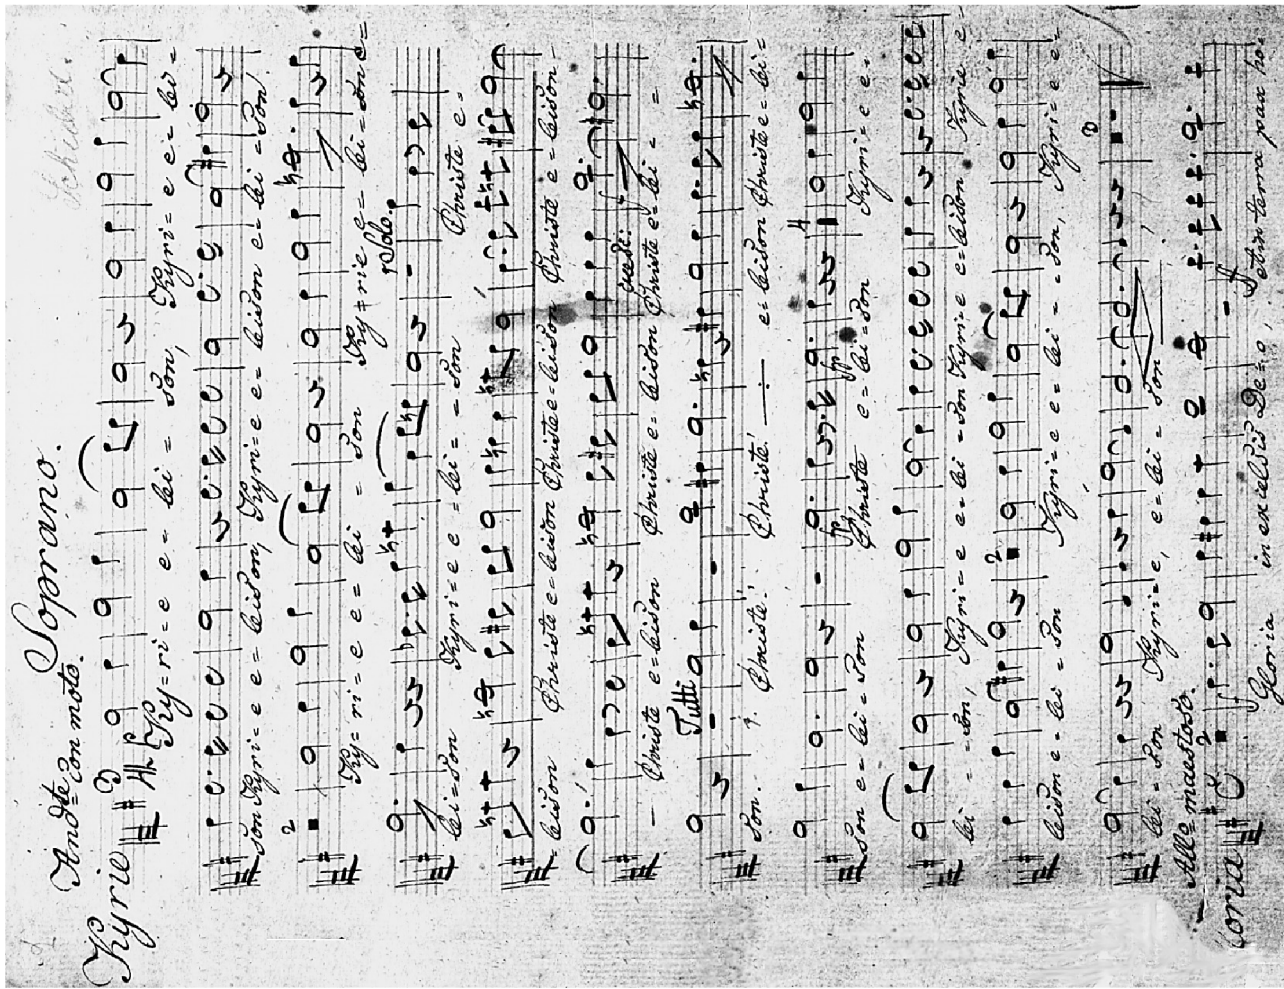 Schieder.
Soprano.
Andte con moto.
Kyrie
Ky=ri=e e = lei = son, Kyri=e e= lei=
son Kyri=e e = leison, Kyri=e e= leison e=lei=son,
2
Ky=ri=e e=lei = son Ky=rie e=lei=son e=
Solo.
lei=son Kyri=e e=lei=son Christe e=
leison Christe e=leison Christe e=leison Christe e=leison
cresc:
Christe e=leison Christe e=leison Christe e=lei=
Tutti
son. Christe! Christe! e=leison Christe e=lei=
4
son e=lei=son Christe e=lei=son Kyri=e e=
lei=son, Kyri=e e=lei=son Kyri=e e=leison Kyrie e=
2
leison e=lei=son Kyri=e e=lei=son, Kyri=e e=
3
lei=son Kyri=e, e=lei=son
Allo maestoso.
oria
2
Gloria in excelsis De=o, Et in terra pax ho=